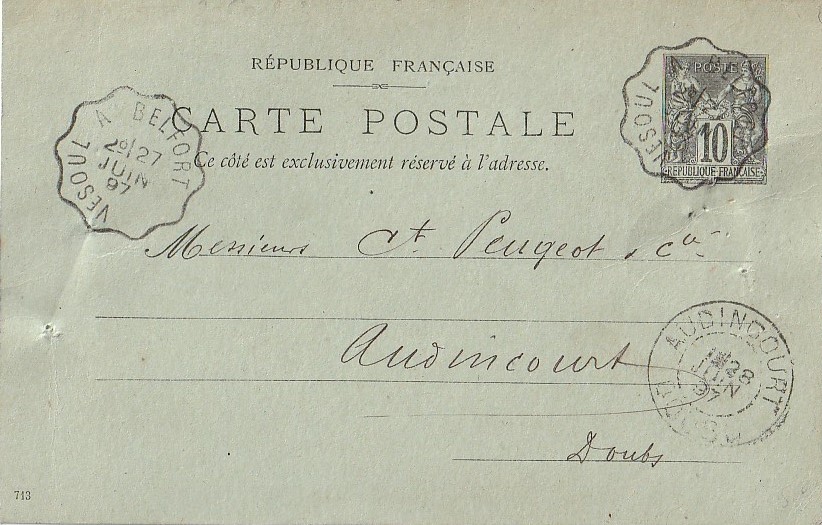 RÉPUBLIQUE FRANÇAISE
CARTE POSTALE
Ce côté est exclusivement réservé à l'adresse.
VESOUL A BELFORT
27
JUIN
97
VESOUL A
POSTE
10
REPUBLIQUE FRANÇAISE
Messieurs Ct. Peugeot & Cie
Audincourt
Doubs
AUDINCOURT
28
JUIN
97
713